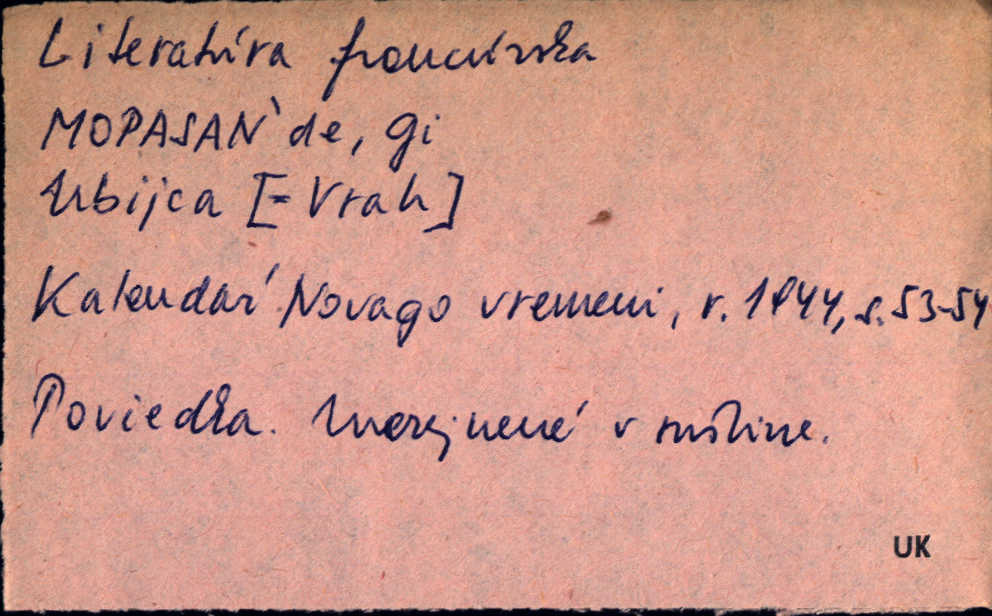 Literatúra francúzska
MOPASAN`de, Gi
Ubijca [= Vrah]
Kalendar' Novago vremeni, r. 1944, s. 53-54
Poviedka. Uverejnené v ruštine.
UK